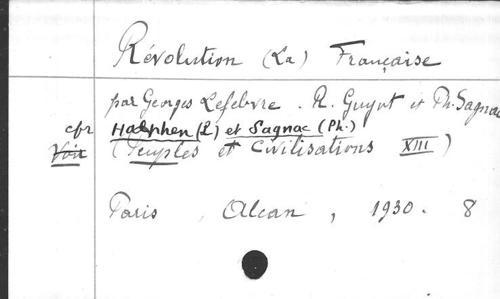 Révolution (La) Française
par Georges Lefebvre. R. Guyot et Ph. Sagnac
cfr Halphen (L) et Sagnac (Ph.)
Voir (Peuples et Civilisations XIII)
Paris, Alcan, 1930. 8